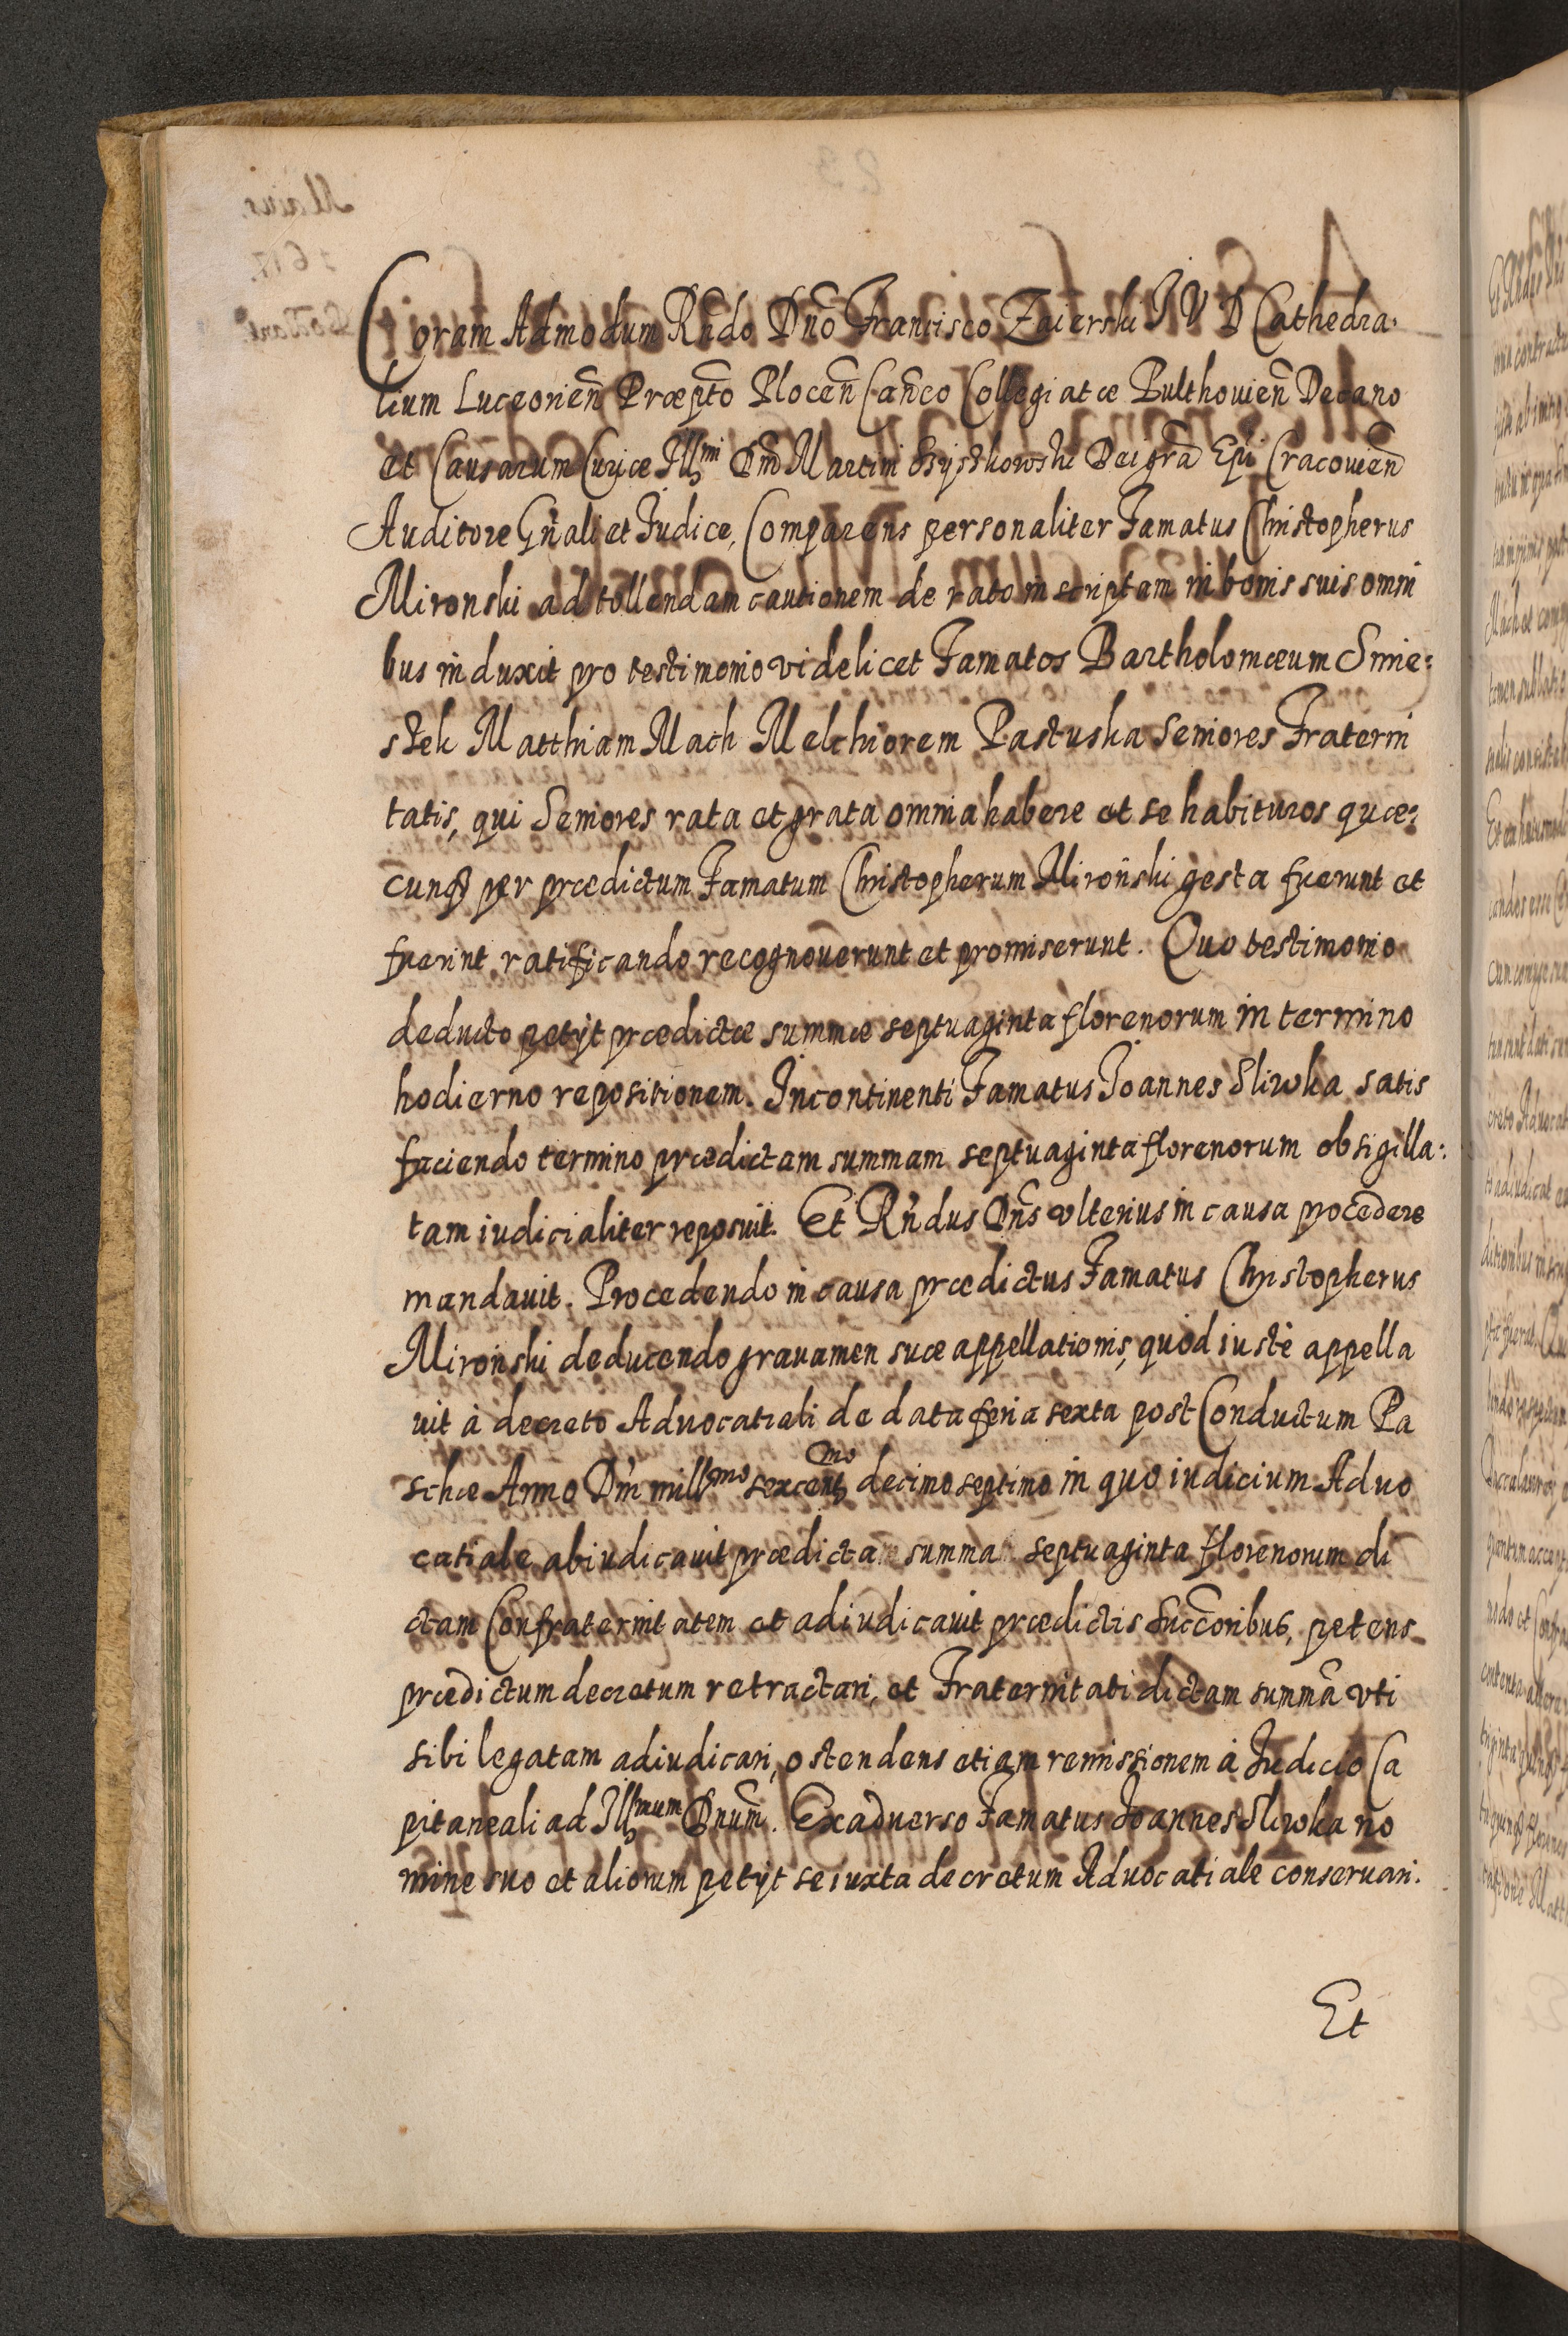 Coram Admodum Rñdo Dño Francisco Zaierski I V D Cathedra:
lium Luceorieñ Præpto Ploceñ Cañco Collegiatæ Pulthouieñ Decano
et Causarum Curiæ Illmi Dñi Martini Szyszkowski Dei grã Epi Cracouieñ
Auditore Gñali et Iudice, Comparens personaliter Famatus Christopherus
Mironski ad tollendam cautionem de rato inscriptam in bonis suis omni
bus induxit pro testimonio videlicet Famatos Bartholomæum Smie:
stek Matthiam Mach Melchiorem Pastuska Seniores Fraterni
tatis, qui Seniores rata et grata omnia habere et se habituros quæ:
cunq per prædictum Famatum Christopherum Mironski gesta fuerunt et
fuerint ratificando recognouerunt et promiserunt. Quo testimonio
deducto petyt prædictæ summæ septuaginta florenorum in termino
hodierno repositionem. Incontinenti Famatus Ioannes Sliwka satis
faciendo termino prædictam summam septuaginta florenorum obsigilla:
tam iudicialiter reposuit. Et Rñdus Dñs vlterius in causa procedere
mandauit. Procedendo in causa prædictus Famatus Christopherus
Mironski deducendo grauamen suæ appellationis, quod iustè appella
uit à decreto Aduocatiali de data feria sexta post Conductum Pa
schæ Anno Dñi millmo sexcentmo decimo septimo in quo iudicium Aduo
catiale abiudicauit prædicta summa septuaginta florenorum di
ctam Confraternitatem et adiudicauit prædictis Succoribus, petens
prædictum decretum retractari, et Fraternitati dictam summã vti
sibi legatam adiudicari, ostendens etiam remissionem à Iudicio Ca
pitaneali ad Illmum Dnum. Exaduerso Famatus Ioannes Sliwka no
mine suo et aliorum petyt se iuxta decretum Aduocatiale conseruari.
Et